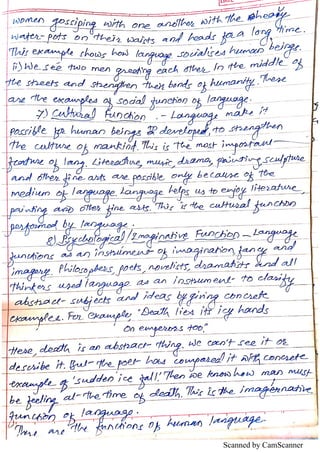 women gossiping with one another with the heavy
water-pots on their waists and heads for a long time.
This example shows how language socialises human beings.
ii) We see two men greeting each other in the middle of
the streets and strengthen their bonds of humanity. These
are the examples of social function of language.
7) Cultural Function :- Language make it
possible for human beings & developed, to strengthen
the culture of mankind. This is the most important
feature of lang. Literature, music, drama, painting, sculpture
and other fine arts are possible only because of the
medium of language. Language helps us to enjoy literature,
painting and other fine arts. This is the cultural function
performed by language.
8) Psychological / Imaginative Function - Language
functions as an instrument of imagination, fancy and
imagery. Philosophers, poets, novelists, dramatists and all
thinkers used language as an instrument to clarify
abstract subjects and ideas by giving concrete
examples. For example, "Death lies its icy hands
on emperors too."
Here, death is an abstract thing. We can't see it or
describe it. But the poet has compared it with concrete
example of 'sudden ice fall.' Then we know how man must
be feeling at the time of death. This is the imaginative
function of language.
These are the functions of human language.
Scanned by CamScanner